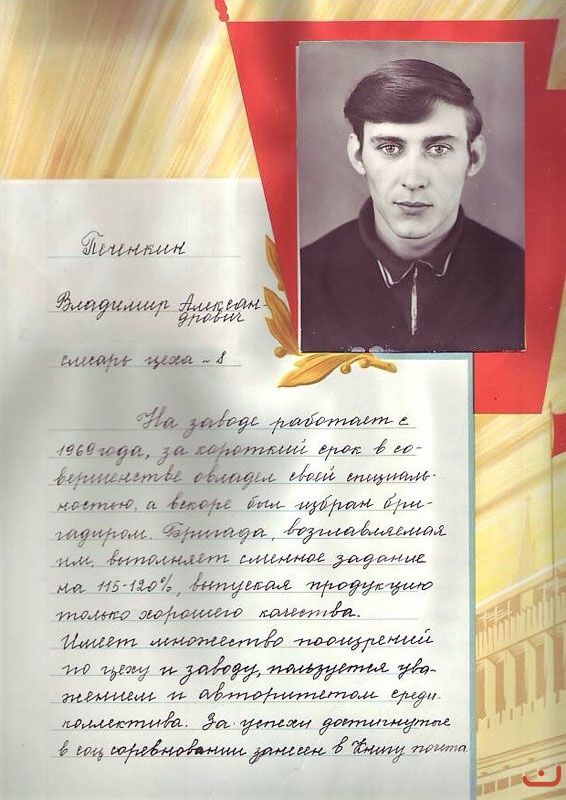 Печенкин
Владимир Александрович
слесарь цеха - 8
На заводе работает с
1969 года, за короткий срок в со-
вершенстве овладел своей специаль-
ностью, а вскоре был избран бри-
гадиром. Бригада, возглавляемая
им, выполняет сменное задание
на 115-120%, выпуская продукцию
только хорошего качества.
Имеет множество поощрений
по цеху и заводу, пользуется ува-
жением и авторитетом среди
коллектива. За успехи достигнутые
в соц соревновании занесен в Книгу почета